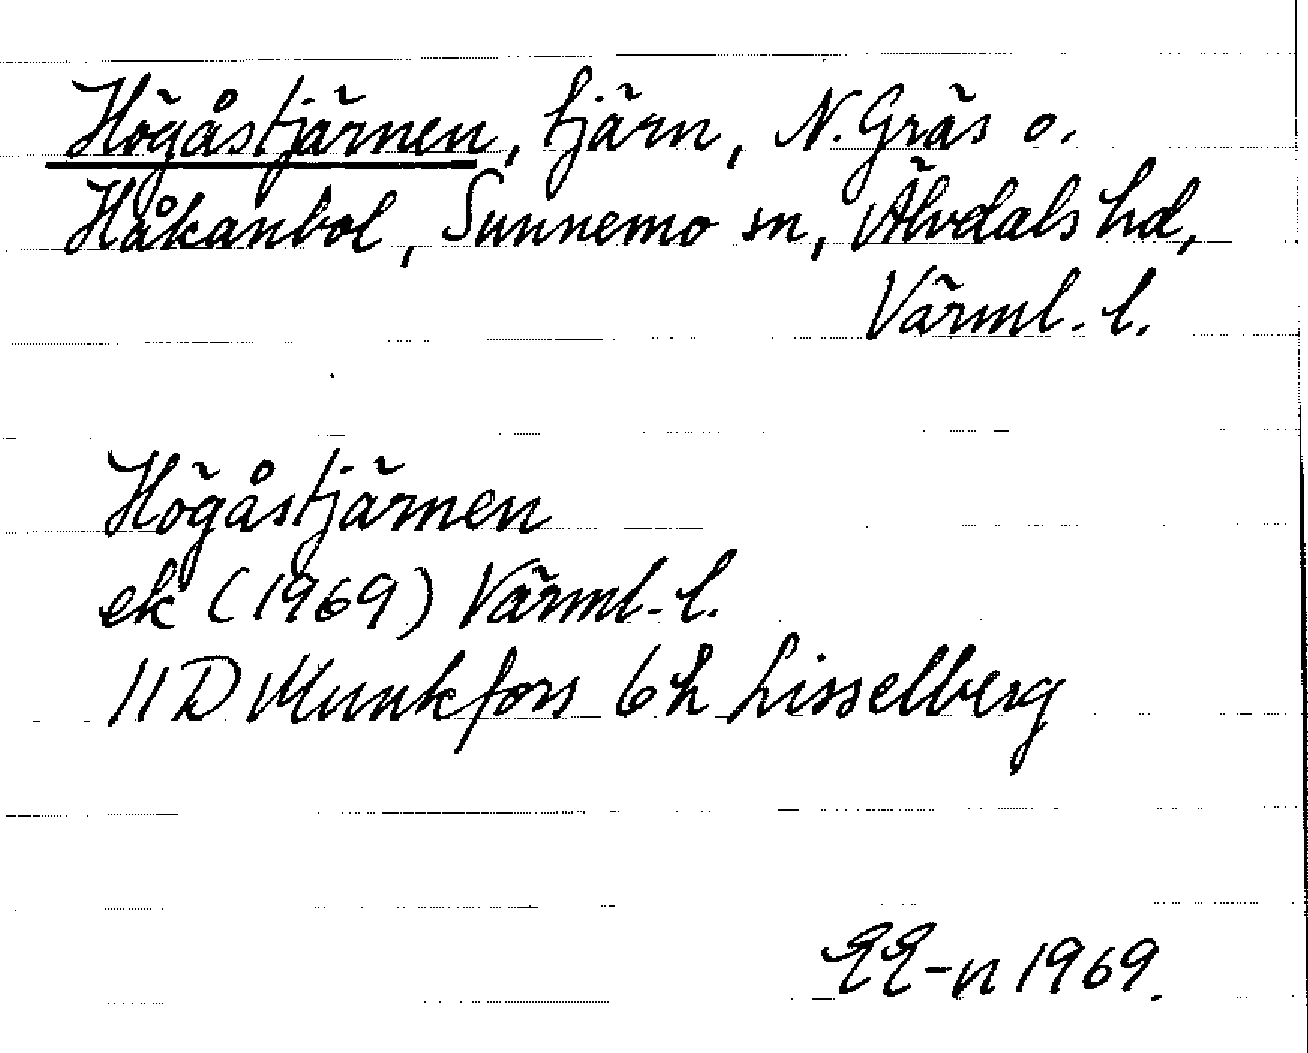 Högåstjärnen, tjärn, N. Gräs o.
Håkanbol, Sunnemo sn, Älvdals hd,
Värml. l.
Högåstjärnen
ek (1969) Värml. l.
11D Munkfors 6h Lisselberg
EE-n 1969.